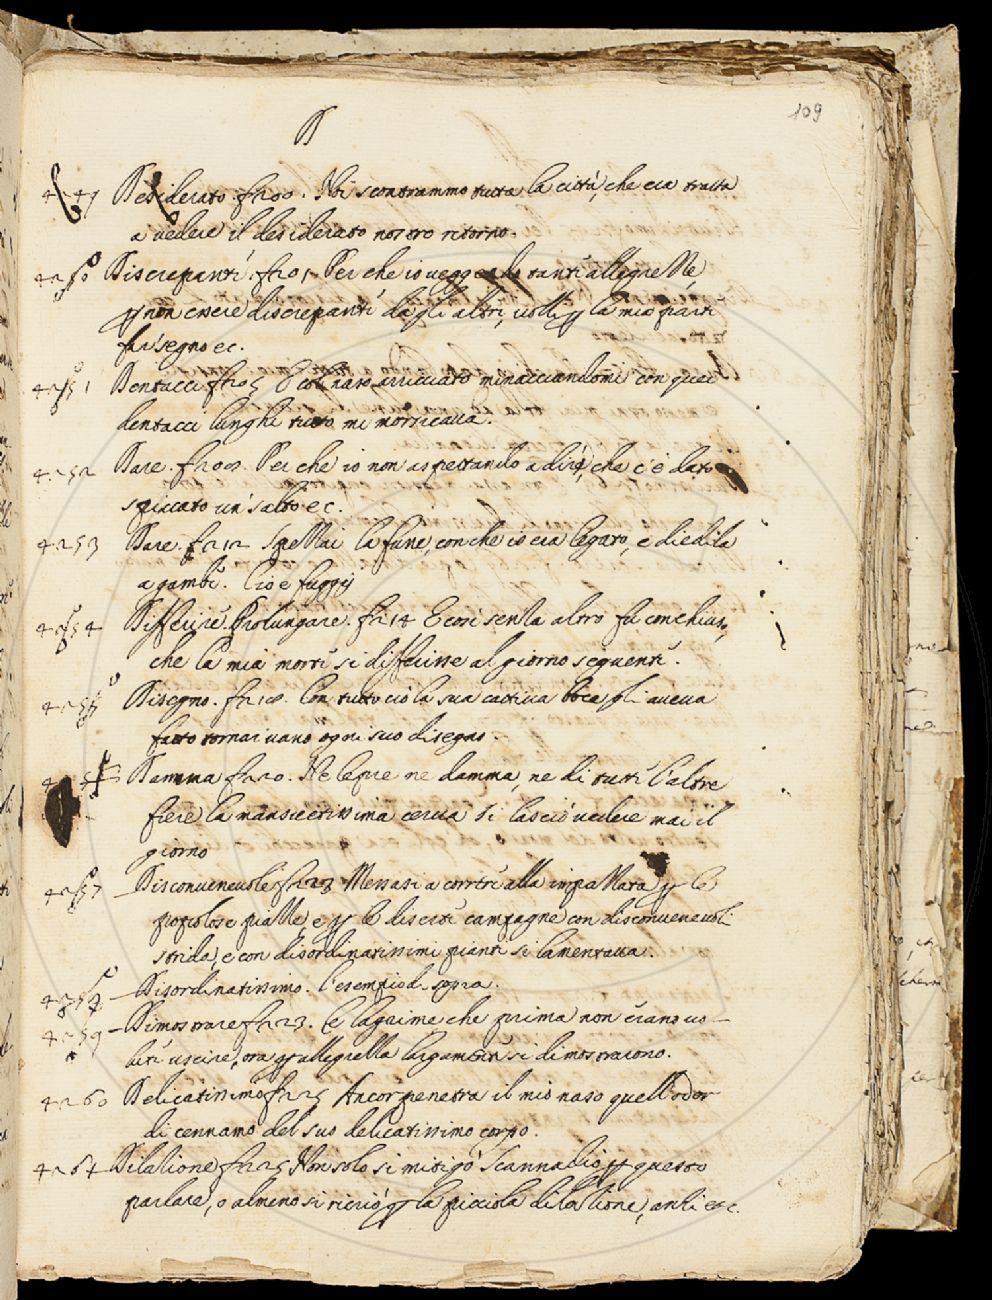 109
D
4249 Desiderato. f 200. Ivi scontrammo tutta la città, che era tratta
a vedere il desiderato nostro ritorno.
4250 Discrepanti. f 201. Per che io veggendo tanti allegrezze,
p non essere discrepanti da gli altri, volli p la mia parte
far segno ec.
4251 Dentacci f 205 E col naso arricciato minacciandomi con quei
dentacci lunghi tutto mi morsicava.
4252 Dare. f 208. Per che io non aspettando a dire, che c'è dato
spiccato un salto ec.
4253 Dare. f 212 Spezzai la fune, con che io era legato, e diedila
a gambe. Cioè fuggij
4254 Differire. Prolungare. f 214 E così senza altro fu conchiuso,
che la mia morte si differisse al giorno seguente.
4255 Disegno. f 218. Con tutto ciò la sua cattiva voce gli aveva
fatto tornar vano ogni suo disegno.
Damma f 220. Ne lepre ne damma, ne di tutte l'altre
fiere la mansuetissima cerva si lasciò vedere mai il
giorno
4257 Disconvenevole f 223 Messasi a correre alla impazzata p le
popolose piazze, e p le diserte campagne con disconvenevoli
strida, e con disordinatissimi pianti si lamentava.
Disordinatissimo. l'esempio di sopra.
4259 Dimostrare f 223. Le lagrime che prima non erano vo-
lute uscire, ora p allegrezza largamente si dimostrarono.
4260 Delicatissimo f 225 Ancor penetra il mio naso quell'odor
di cennamo del suo delicatissimo corpo.
4261 Dilazione f 225 Non solo si mitigò Scannadio p questo
parlare, o almeno si ricriò p la picciola dilazione, anzi etc.